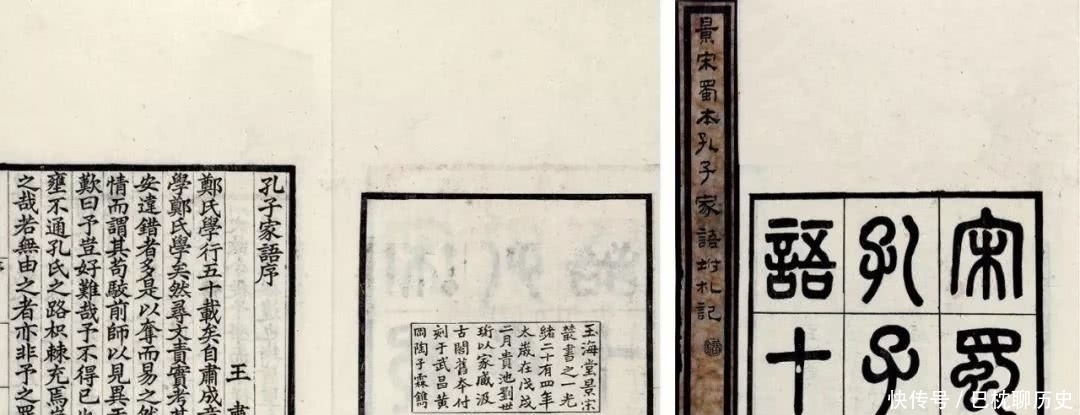 宋蜀
孔子
語十
景宋蜀本孔子家語坿札記
玉海堂景宋
叢書之一光
緒二十有四年
太歲在戊戌
二月貴池劉世
珩以家臧汲
古閣舊本付
刻于武昌黄
岡陶子霖鐫
孔子家語序
王肅
鄭氏學行五十載矣自肅成
學鄭氏學矣然尋文責實考其
安違錯者多是以奪而易之然
情而謂其苟駮前師以見異
歎曰予豈好難哉予不得已也
壅不通孔氏之路枳棘充焉
之哉若無由之者亦非予之罪
快传号/日枕聊历史